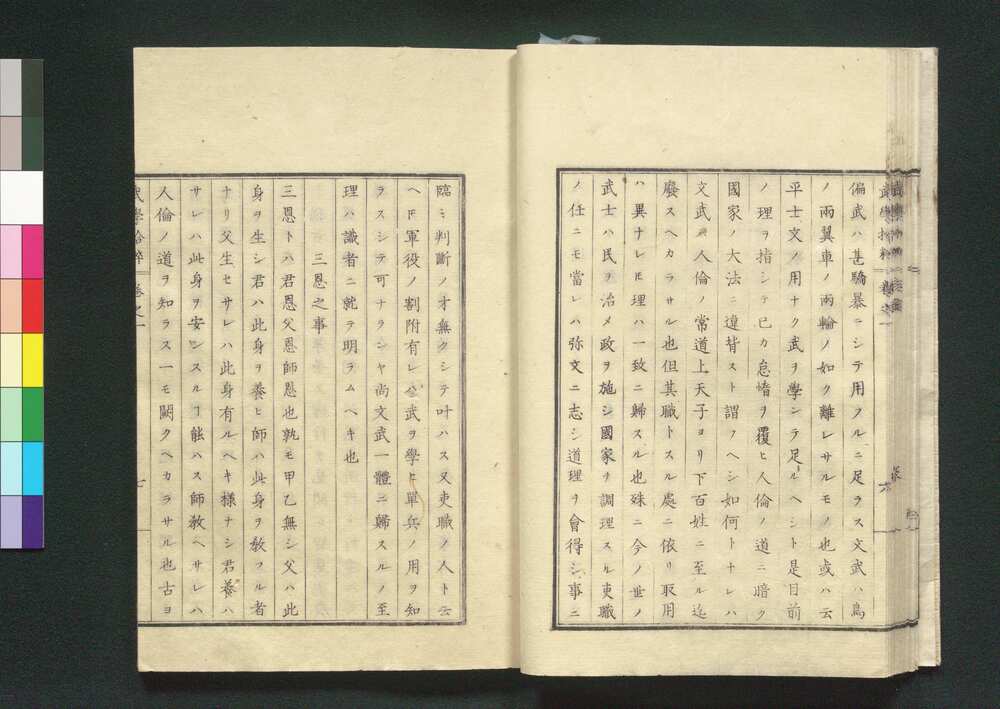 偏武ハ甚驕暴ニシテ用フルニ足ラス文武ハ鳥
ノ兩翼車ノ兩輪ノ如ク離レサルモノ也或ハ云
平士文ノ用ナク武ヲ學ンテ足ルヘシト是目前
ノ理ヲ指シテ已カ怠惰ヲ覆ヒ人倫ノ道ニ暗ク
國家ノ大法ニ違背スト謂フヘシ如何トナレハ
文武ハ人倫ノ常道上天子ヨリ下百姓ニ至ル迄
廢スヘカラサル也但其職トスル處ニ依リ取用
ハ異ナレ𪜈理ハ一致ニ歸スル也殊ニ今ノ世ノ
武士ハ民ヲ治メ政ヲ施シ國家ヲ調理スル吏職
ノ任ニモ當レハ弥文ニ志シ道理ヲ會得シ事ニ
臨ミ判斷ノ才無クシテ叶ハス又吏職ノ人ト云
ヘ𪜈軍役ノ割附有レハ武ヲ學ヒ單兵ノ用ヲ知
ラスシテ可ナランヤ尚文武一體ニ歸スルノ至
理ハ識者ニ就テ明ラムヘキ也
三恩之事
三恩トハ君恩父恩師恩也孰モ甲乙無シ父ハ此
身ヲ生シ君ハ此身ヲ養ヒ師ハ此身ヲ教フル者
ナリ父生セサレハ此身有ルヘキ様ナシ君養ハ
サレハ此身ヲ安ンスルヿ能ハス師教ヘサレハ
人倫ノ道ヲ知ラス一モ闕クヘカラサル也古ヨ
武學拾粹 卷之一 七